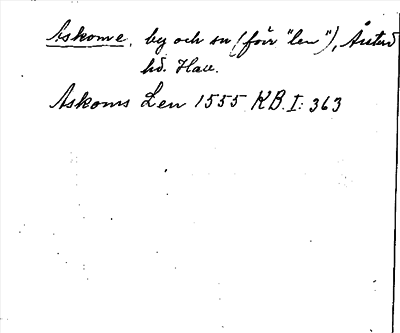 Askome, by och sn (förr "len"), Årstad
hd. Hall.
Askoms Len 1555 KB. I: 363